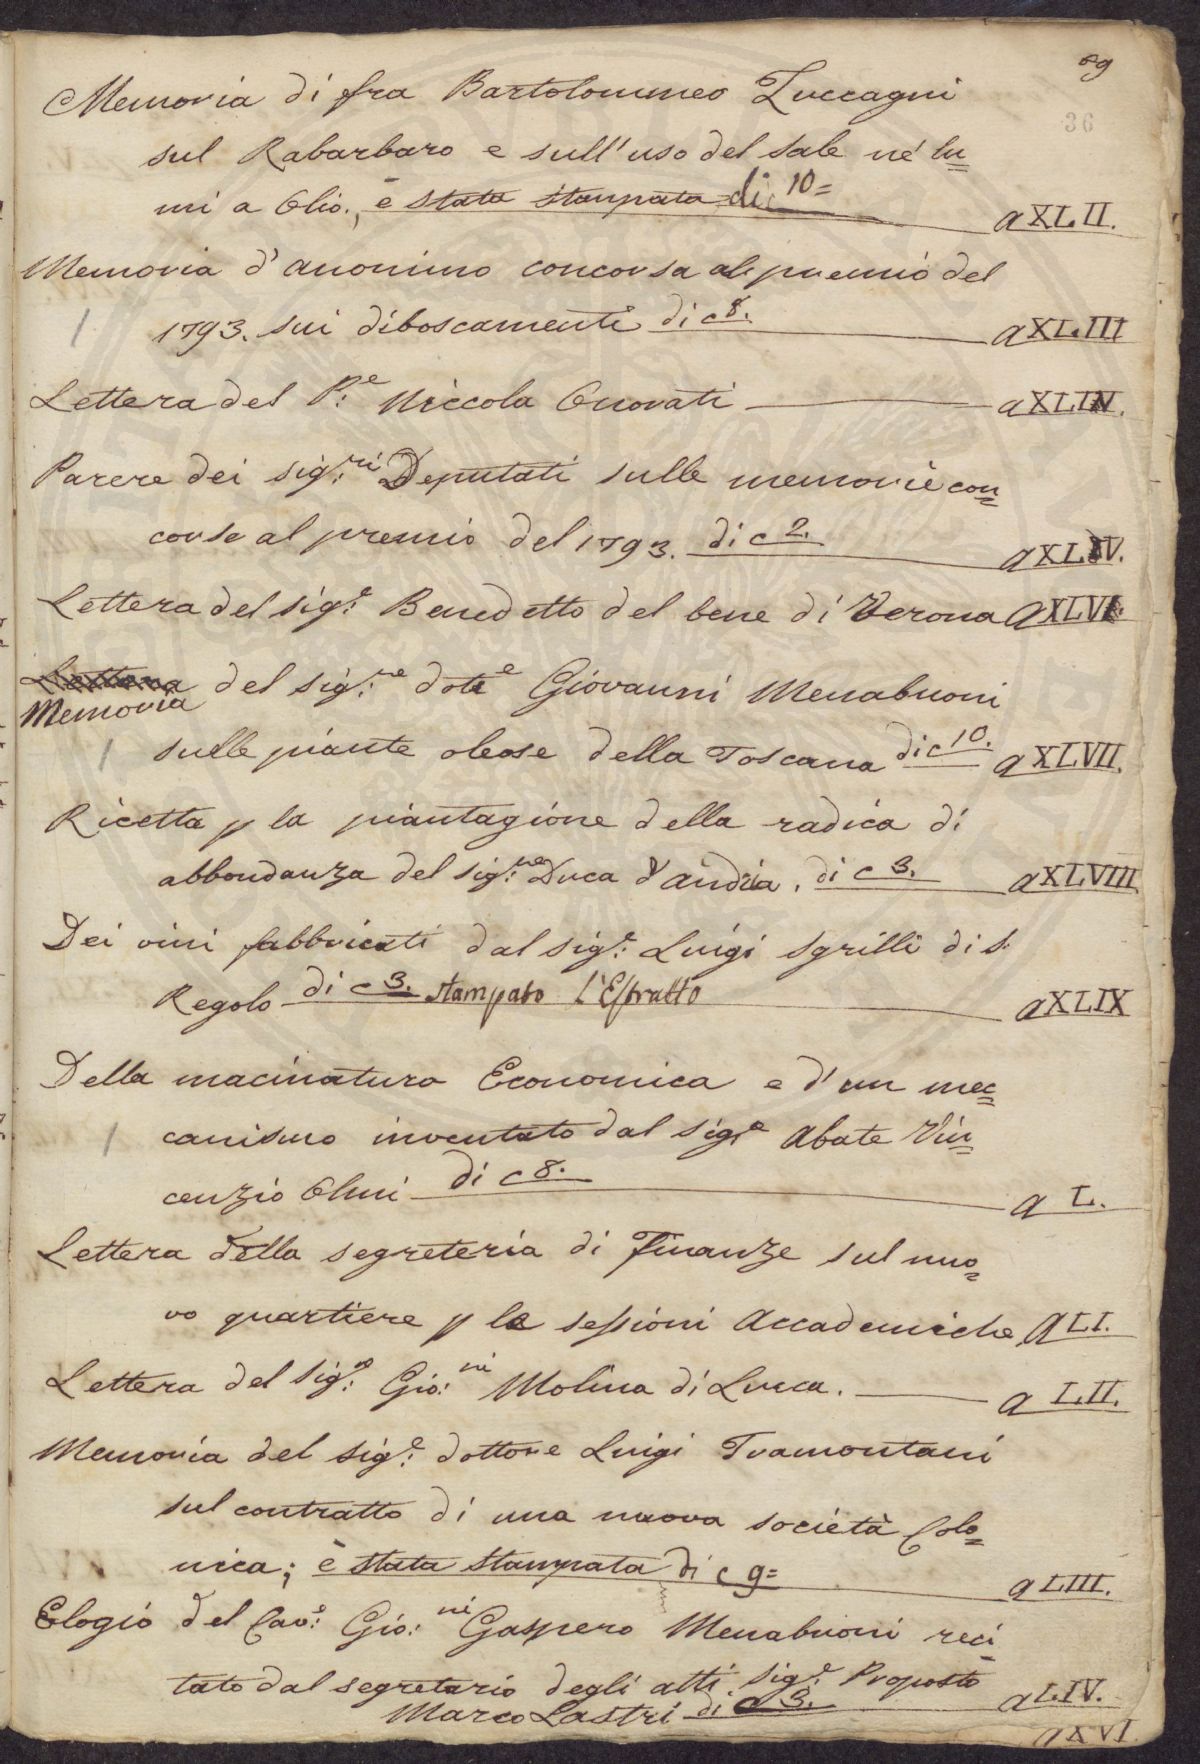 89
36
Memoria di fra Bartolommeo Zuccagni
sul Rabarbaro e sull'uso del sale ne' lu=
mi a Olio., è stata stampata di 10= a XLII.
Memoria d'anonimo concorsa al premio del
1793. sui diboscamenti di c 8. a XLIII
Lettera del P.e Niccola Onorati a XLIV.
Parere dei sig.ri Deputati sulle memorie con=
corse al premio del 1793. di c 2. a XLV.
Lettera del sig.e Benedetto del bene di Verona a XLVI.
Lettera del sig.re dott.e Giovanni Menabuoni
Memoria
sulle piante oleose della Toscana di c 10. a XLVII.
Ricetta p la piantagione della radica di
abbondanza del sig.re Duca d'andria. di c 3. a XLVIII
Dei vini fabbricati dal sig.e Luigi Sgrilli di S.
Regolo di c 3. stampato l'Estratto a XLIX
Della macinatura Economica e d'un mec=
canismo inventato dal sig.e Abate Vin=
cenzio Olmi di c 8. a L.
Lettera della segreteria di Finanze sul nuo=
vo quartiere p le sessioni Accademiche a LI.
Lettera del Sig.e Gio.ni Molina di Lucca. a LII.
Memoria del sig.e dottore Luigi Tramontani
sul contratto di una nuova società Colo=
nica; è stata stampata di c 9= a LIII.
Elogio del Cav.e Gio.ni Gaspero Menabuoni reci
tato dal segretario degli atti sig.e Proposto
Marco Lastri di c 3. a LIV.
a XVI